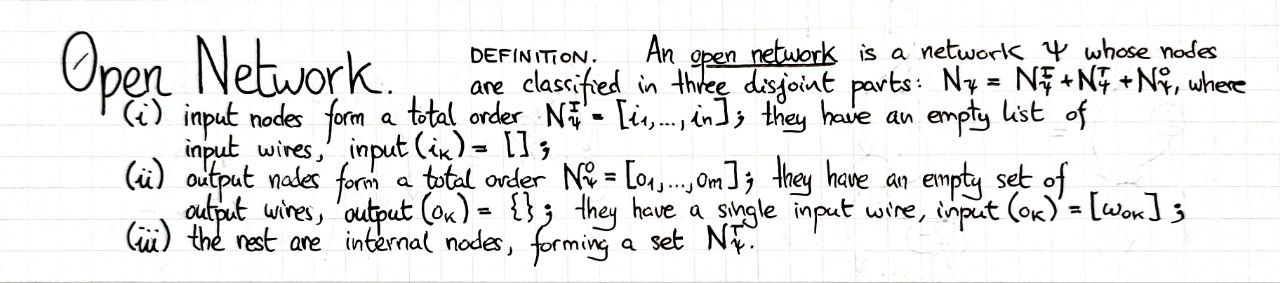 Open Network.
DEFINITION. An open network is a network Ψ whose nodes
are classified in three disjoint parts: N_Ψ = N_Ψ^I + N_Ψ^T + N_Ψ^O, where
(i) input nodes form a total order N_Ψ^I = [i₁,...,iₙ]; they have an empty list of
input wires, input(i_K) = [];
(ii) output nodes form a total order N_Ψ^O = [o₁,...,oₘ]; they have an empty set of
output wires, output(o_K) = {}; they have a single input wire, input(o_K) = [ω_oK];
(iii) the rest are internal nodes, forming a set N_Ψ^T.